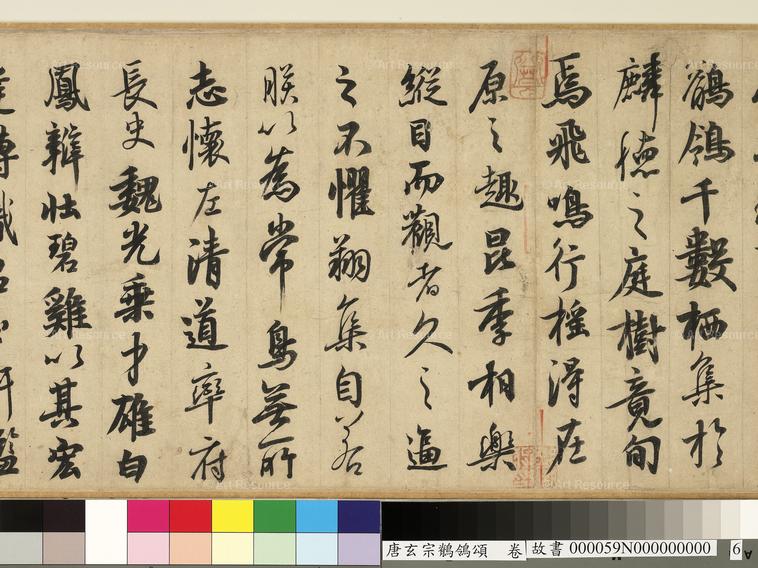 鶺鴒千數栖集於
麟德之庭樹竟旬
焉飛鳴行搖得在
原之趣昆季相樂
縱目而觀者久之逼
之不懼翔集自若
朕以為常鳥無所
志懷左清道率府
長史魏光乘才雄白
鳳辯壯碧雞以其宏
達博識召至軒檻
唐玄宗鶺鴒頌 卷 故書 000059N000000000 6
© Art Resource